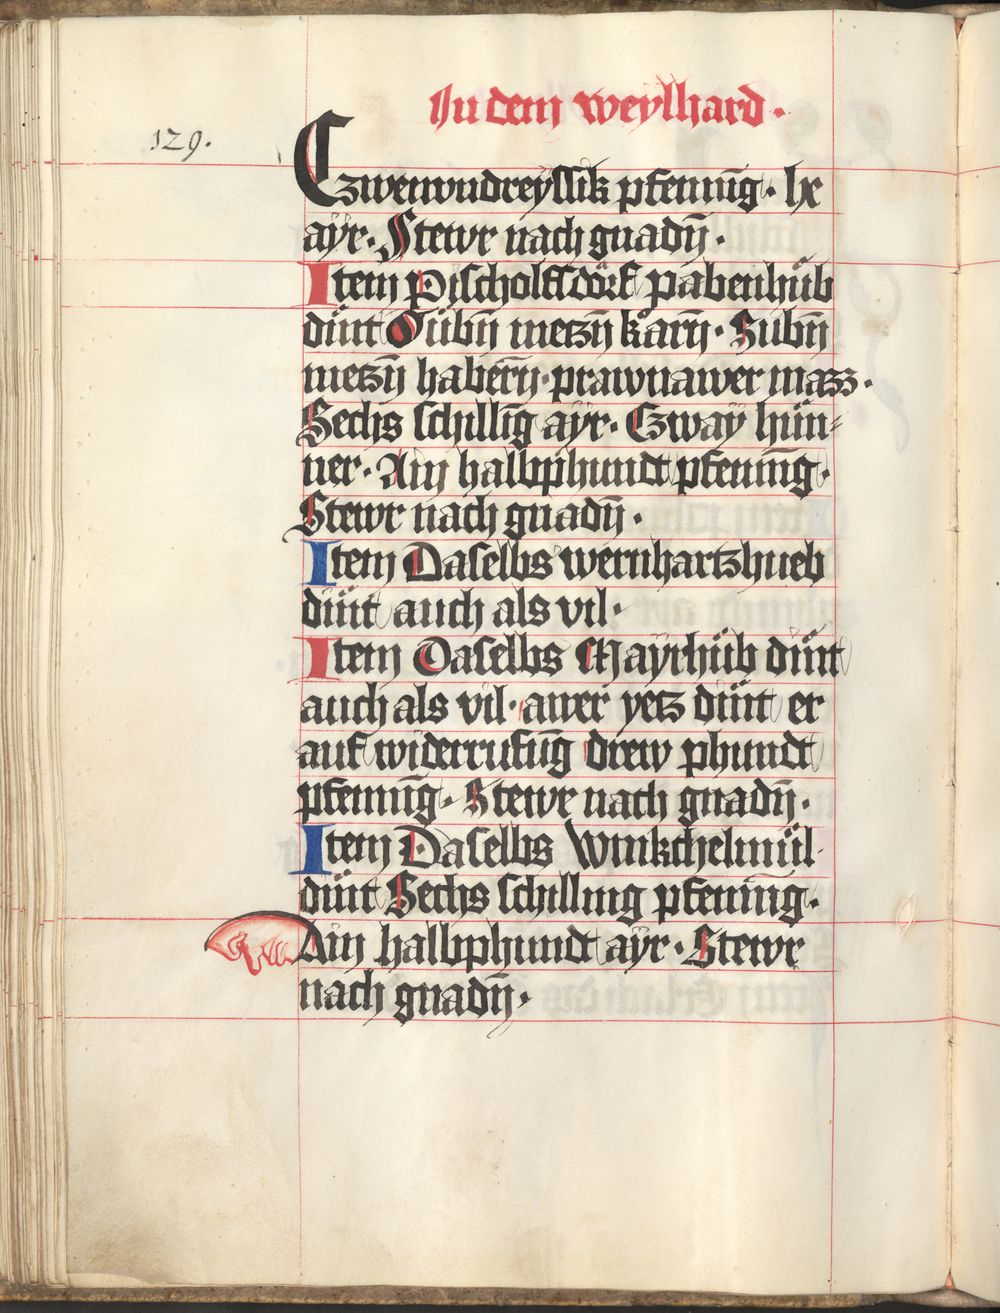 In dem weylhard ·
129.
Czwenundreyssik pfenni̅g · lx
aÿr · Stewr nach gnadn̅ ·
Item Pischolffdorf pabenhüb
dint Sübn̅ metzn̅ karn̅ · Sübn̅
metzn̅ habern̅ · prawnawer mazz ·
Sechs schilli̅g aÿr · Czwaÿ hün-
ner · Ain halbphundt pfeni̅ng ·
Stewr nach gnadn̅ ·
Item Daselbs wernhartzhueb
dint auch als vil ·
Item Daselbs Mayrhüb dint
auch als vil · awer yetz dint er
auf widerrufu̅g drew phundt
pfenni̅g · Stewr nach gnadn̅ ·
Item Daselbs Winkchelmül
dint Sechs schilling pfeni̅ng ·
Ain halbphundt aÿr · Stewr
nach gnadn̅ ·